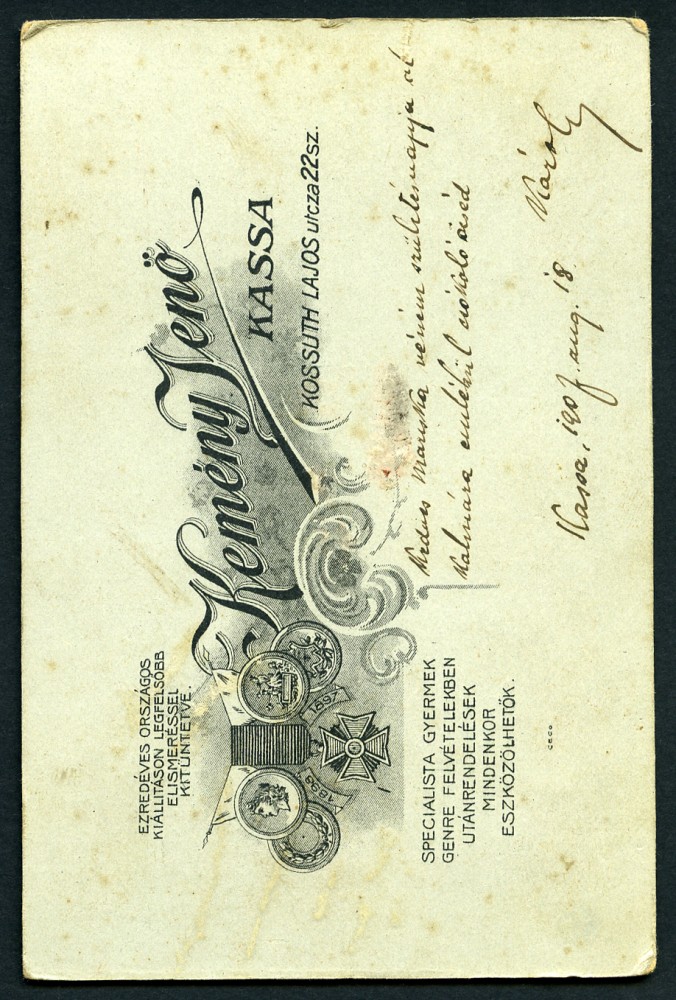 EZREDÉVES ORSZÁGOS
KIÁLLITÁSON LEGFELSŐBB
ELISMERÉSSEL
KITÜNTETVE.
Kemény Jenő
KASSA
KOSSUTH LAJOS utcza 22 sz.
1899
1897
SPECIALISTA GYERMEK
GENRE FELVÉTELEKBEN
UTÁNRENDELÉSEK
MINDENKOR
ESZKÖZÖLHETŐK.
Kedves Mariska néném születésnapja al
kalmára emlékül csókoló öcséd
Kassa, 1907. aug. 18 Károly